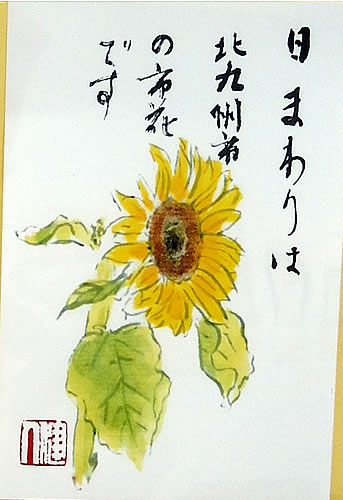 日まわりは
北九州市
の市花
です